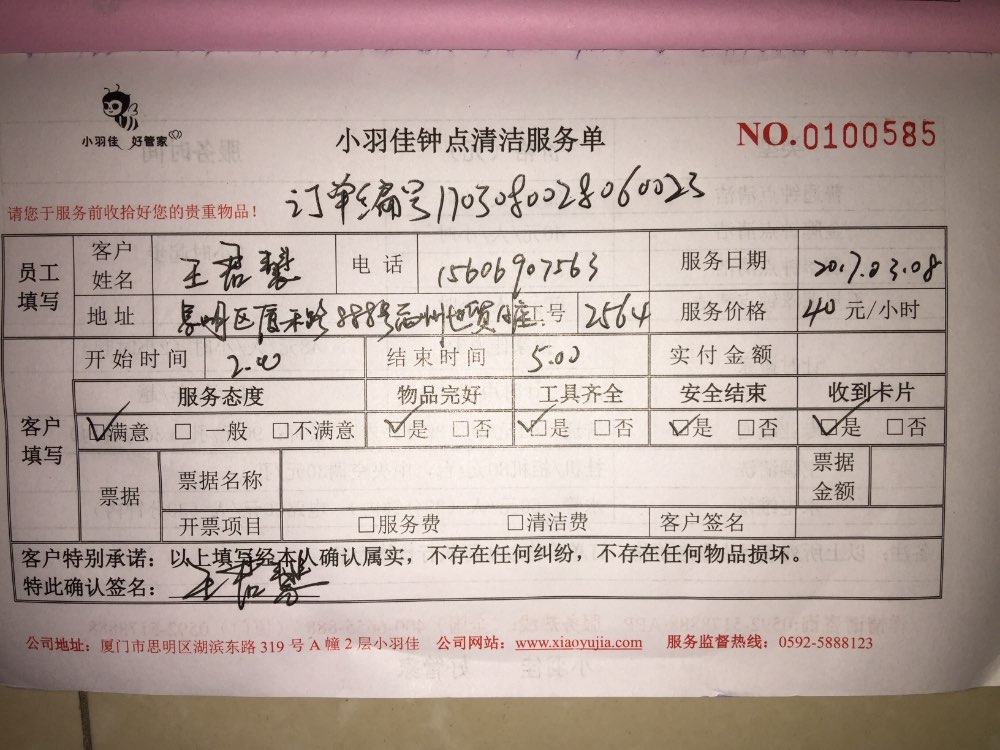 小羽佳 好管家
小羽佳钟点清洁服务单
NO.0100585
订单编号1703080028060023
请您于服务前收拾好您的贵重物品！
员工填写 客户姓名 王君慧 电话 15606907563 服务日期 2017.03.08
地址 思明区厦禾路888号 工号 2564 服务价格 40 元/小时
客户填写 开始时间 2.00 结束时间 5.00 实付金额
服务态度 物品完好 工具齐全 安全结束 收到卡片
☑满意 □一般 □不满意 ☑是 □否 ☑是 □否 ☑是 □否 ☑是 □否
票据 票据名称 票据金额
开票项目 □服务费 □清洁费 客户签名
客户特别承诺：以上填写经本人确认属实，不存在任何纠纷，不存在任何物品损坏。
特此确认签名：王君慧
公司地址：厦门市思明区湖滨东路 319 号 A 幢 2 层小羽佳 公司网站：www.xiaoyujia.com 服务监督热线：0592-5888123